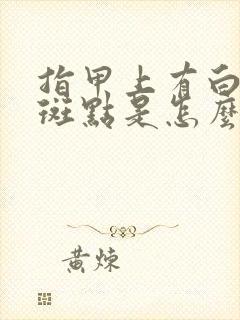 指甲上有白
斑點是怎麼
黃煉